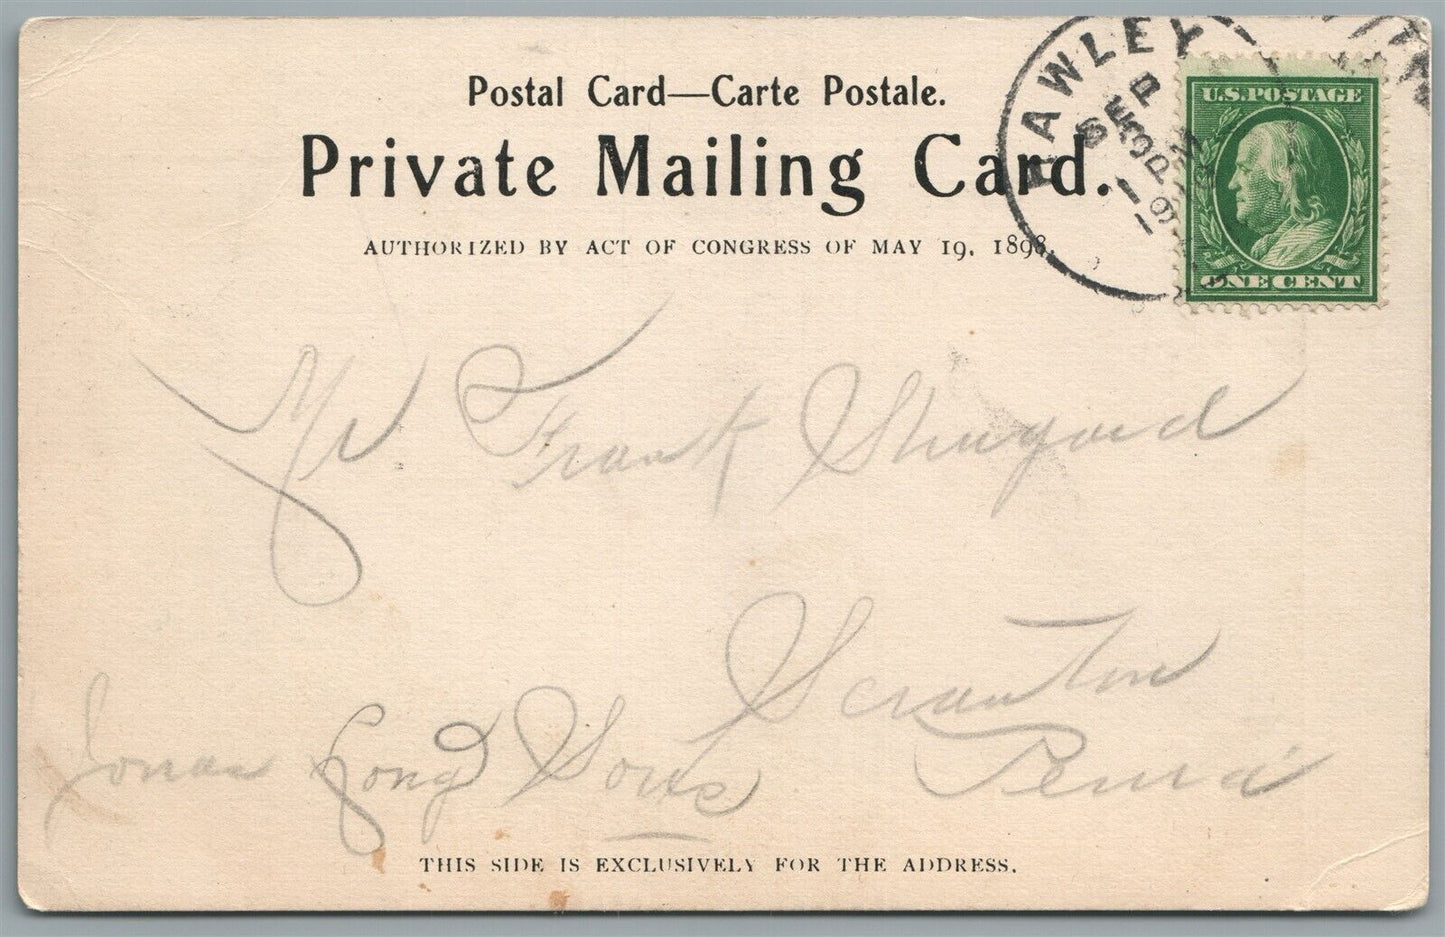 Postal Card—Carte Postale.
Private Mailing Card.
AUTHORIZED BY ACT OF CONGRESS OF MAY 19, 1898.
HAWLEY
SEP
U.S. POSTAGE
ONE CENT
Mr. Frank
Scranton
Penna
Jonas Long Sons
THIS SIDE IS EXCLUSIVELY FOR THE ADDRESS.